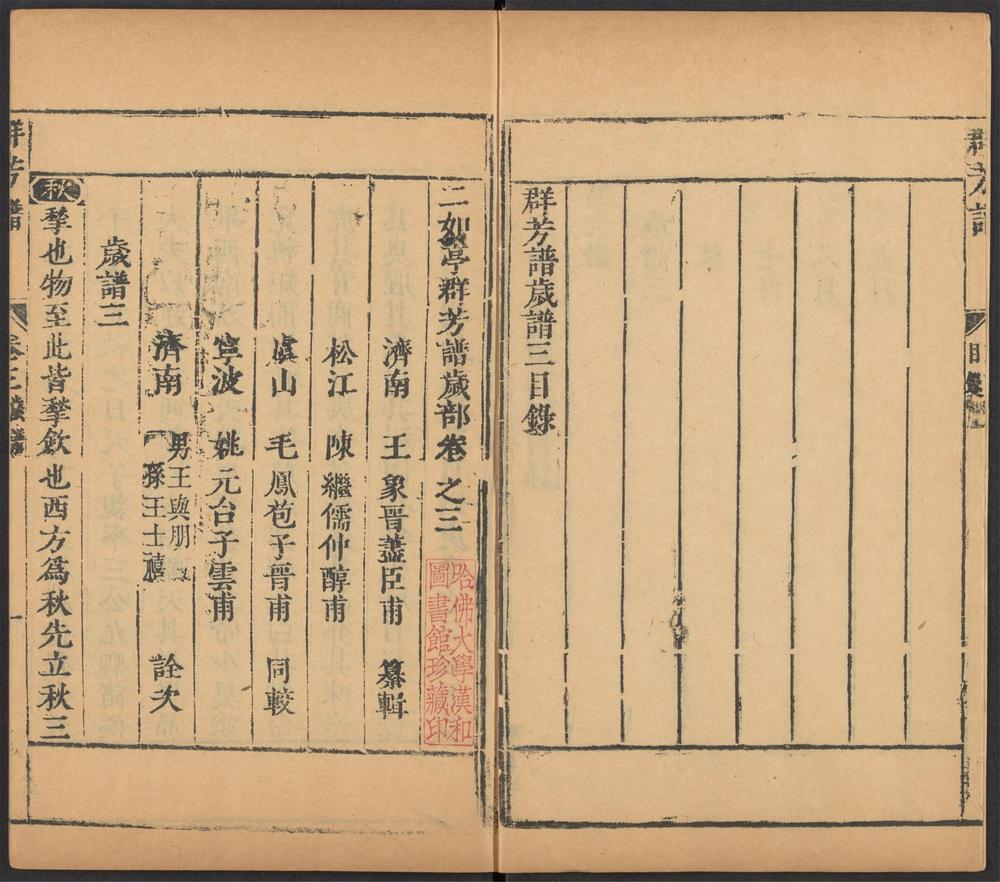 群芳譜
目錄
群芳譜歲譜三目錄
二如亭群芳譜歲部卷之三
濟南 王象晉藎臣甫 纂輯
松江 陳繼儒仲醇甫
虞山 毛鳳苞子晉甫 同較
寧波 姚元台子雲甫
濟南 男王與朋
孫王士禧 詮次
歲譜三
秋 揫也物至此皆揫斂也西方為秋先立秋三
群芳譜
卷三歲譜
一
哈佛大學漢和
圖書館珍藏印